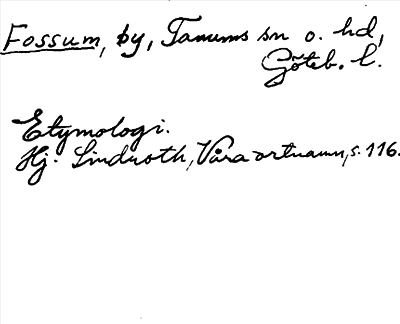 Fossum, by, Tanums sn o. hd,
Göteb. l.
Etymologi.
Hj. Lindroth, Våra ortnamn, s. 116.